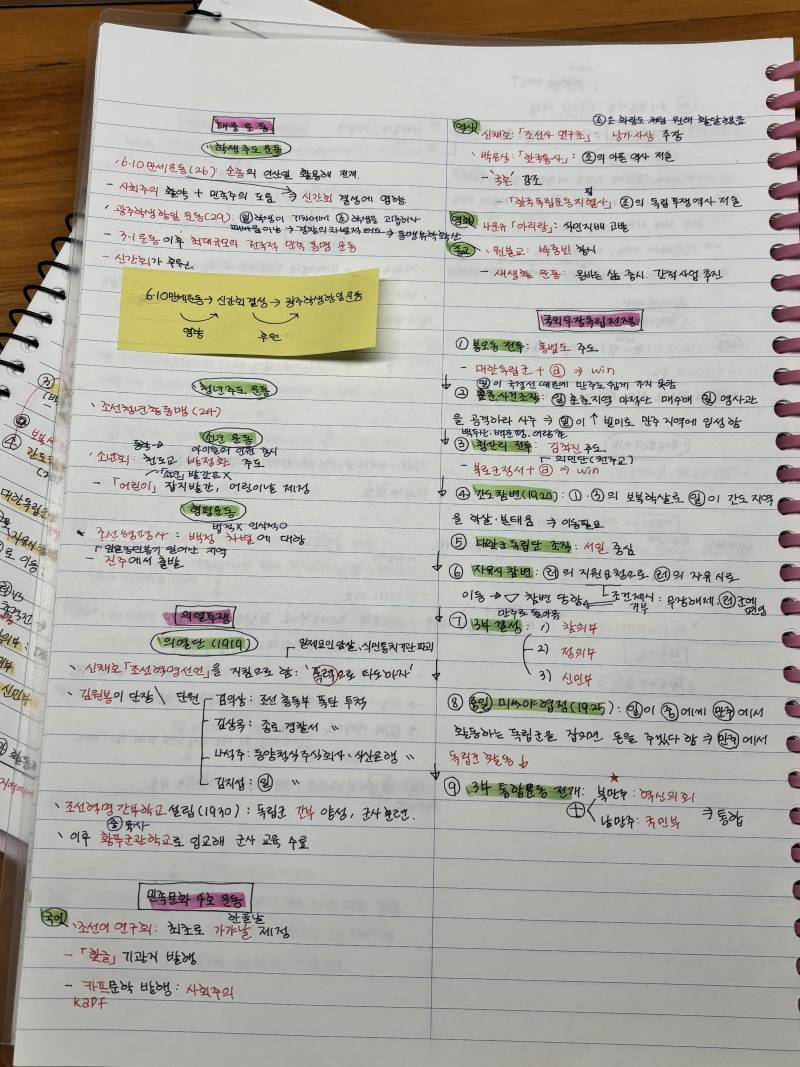 대중 운동
학생 주도 운동
· 6·10 만세 운동(26): 순종의 인산일 활용해 전개.
- 사회주의 활약 + 민족주의 도움 ⇒ 신간회 결성에 영향
· 광주학생항일 운동(29): 일 학생이
- 3·1 운동 이후 최대규모의 전국적 민족 통맹 운동
- 신간회가 후원.
6·10만세운동→신간회 결성→광주학생항일운동
영향
후원
청년 주도 운동
· 조선청년총동맹(24)
소년 운동
어린이 인권 중시
· 소년회: 천도교 방정환 주도
- 「어린이」 잡지 발간, 어린이날 제정
형평운동
· 조선형평사: 백정 차별에 대항
- 진주에서 출발
의열투쟁
의열단(1919)
일제요인 암살, 식민통치기관 파괴
· 신채호「조선혁명선언」을 지침으로 함: '폭력으로 타도하자'
· 김원봉이 단장 \ 단원
김익상: 조선 총독부 폭탄 투척
김상옥: 종로 경찰서 〃
나석주: 동양척식주식회사·식산은행 〃
김지섭: 일 〃
· 조선혁명 간부학교 설립(1930): 독립군 간부 양성, 군사 훈련.
· 이후 황푸군관학교로 입교해 군사 교육 수료
민족문화 수호 운동
국어
한글날
· 조선어 연구회: 최초로 가갸날 제정
- 「한글」 기관지 발행
- 카프문학 발행: 사회주의
KAPF
역사
신채호: 「조선사 연구초」: 낭가사상 주장
· 박은식: 「한국통사」: 조의 아픈 역사 저술
- '국혼' 강조
- 「한국독립운동지혈사」: 조의 독립 투쟁 역사 저술
영화 나운규 「아리랑」: 식민지배 고발
종교 · 원불교: 박중빈 창시
- 새생활 운동: 올바른 삶 중시. 간척사업 추진
국외무장독립전쟁
① 봉오동 전투: 홍범도 주도
- 대한독립군 + ⓐ ⇒ win
일이 국경선 때문에 만주로 쉽게 가지 못함
② 훈춘사건조작: 일 훈춘지역 마적단 매수해 일 영사관
을 공격하라 사주 ⇒ 일이 ↑ 빌미로 만주 지역에 입성함
③ 청산리 전투: 김좌진 주도
의민단(천주교)
- 북로군정서 + ⓐ ⇒ win
④ 간도참변(1920): ①·③의 보복학살로 일이 간도 지역
을 학살·불태움 ⇒ 이동필요
⑤ 대한군독립단 조직: 서일 중심
⑥ 자유시 참변: 러의 지원요청으로 러의 자유시로
이동 → 참변 당함
조건제시: 무장해제, 러군에 편입
거부
만주로 돌아옴
⑦ 3부 결성: 1) 참의부
2) 정의부
3) 신민부
⑧ 중일 미쓰야협정(1925): 일이 중에게 만주에서
활동하는 독립군을 잡으면 돈을 주겠다 함 ⇒ 만주에서
독립군 활동↓
⑨ 3부 통합운동 전개: 북만주: 혁신의회
남만주: 국민부
⇒ 통합